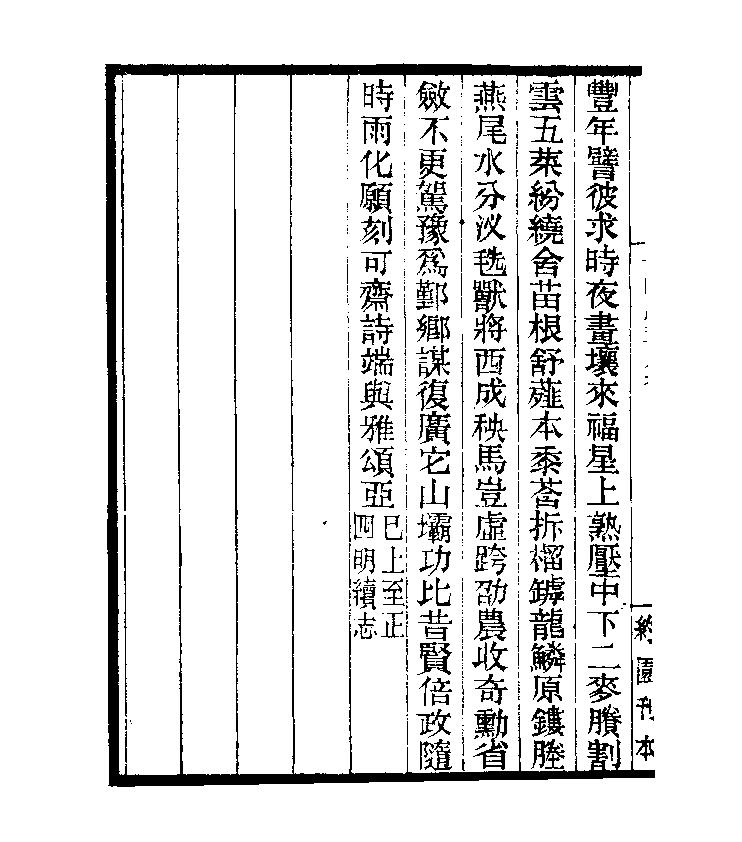 豐年譬彼求時夜晝壤來福星上熟壓中下二麥賸割
雲五菜紛繞舍苗根舒薤本黍莟拆榴罅龍鱗原鏤塍
燕尾水分汊毨獸將西成秧馬豈虛跨劭農收奇勳省
斂不更駕豫爲鄞鄉謀復廣它山壩功比昔賢倍政隨
時雨化願刻可齋詩端與雅頌亞
已上至正
四明續志
約園刊本